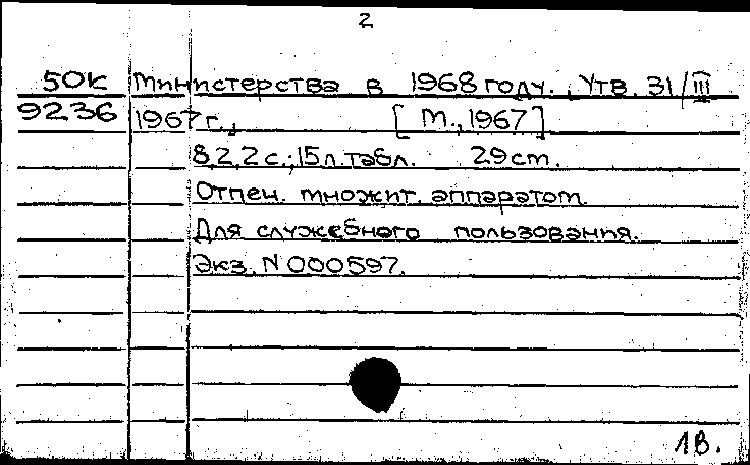 2
50к Министерства в 1968 году. Утв. 31/III
9236 1967 г., [М., 1967]
8,2,2 с.; 15 л. табл. 29 см.
Отпеч. множит. аппаратом.
Для служебного пользования.
Экз. N 000597.
1В.